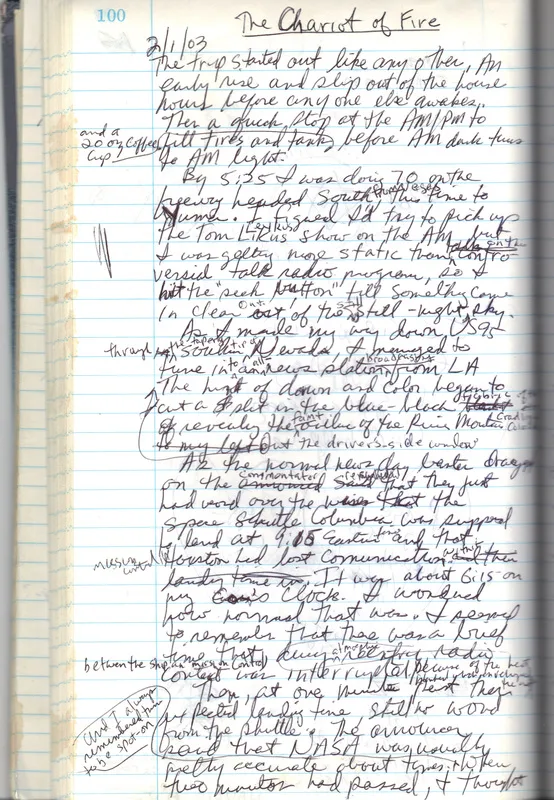 100
The Chariot of Fire
2/1/03
The trip started out like any other, An
early rise and slip out of the house
hours before any one else awakes,
Then a quick stop at the AM/PM to
and a
20 oz Coffee
Cup
fill tires and tank before AM dark turns
to AM light.
By 5:25 I was doing 70 on the
freeway headed South, this time to
Yuma. I figured I'd try to pick up
the Tom Likus show on the AM, but
I was getting more static than contro
versial talk radio program, so I
hit the "seek button" till something came
in clear out of the still-night sky.
As I made my way down US95
through
Southern Nevada, I managed to
tune into an news station from LA
broadcasts
The hint of dawn and color began to
cut a slit in the blue-black
of revealing the outline of the Mountains
to my left out the drivers side window
As the normal news day banter
on the commontator said that they just
had word over the wires that the
space Shuttle Columbia was supposed
to land at 9:15 Eastern and that
mission
control
Houston had lost comunication
landing It was about 6:15 on
my clock. I wondered
how normal that was. I seemed
to remember that there was a brief
time that during reentry radio
between the ship an mission control
contact was interrupted because of the heat
Then, at one minute past their
expected landing time still no word
from the shuttle. The announcer
and I always
remembered them
to be spot-on
said that NASA was usually
pretty accurate about times, when
two minutes had passed, I thought